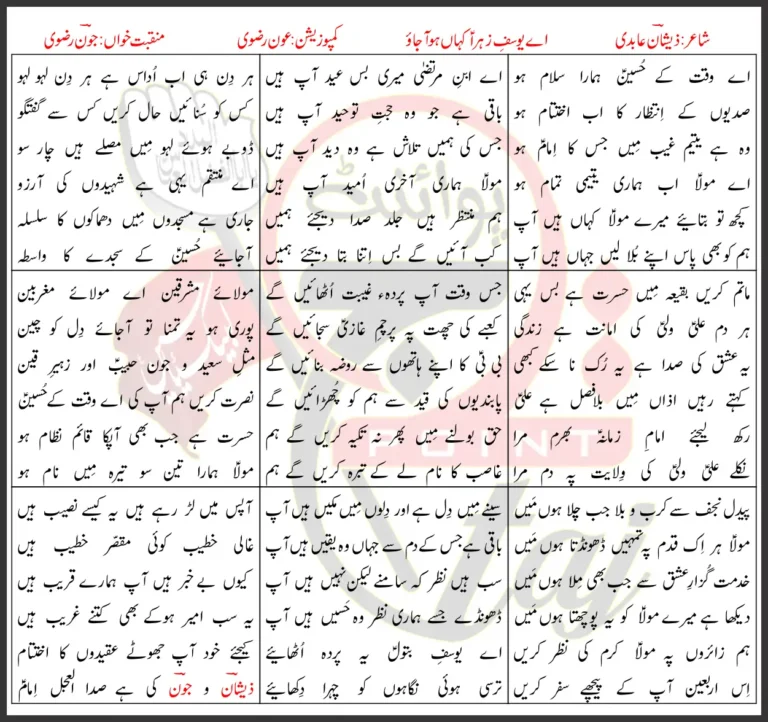 شاعر: ذیشان عابدی
اے یوسفِ زہراؑ کہاں ہو آ جاؤ
کمپوزیشن: عون رضوی
منقبت خواں: جون رضوی
اے وقت کے حُسینؑ ہمارا سلام ہو
صدیوں کے اِنتظار کا اب اختتام ہو
وہ ہے یتیم غیب میں جس کا اِمامؑ ہو
اے مولاؑ اب ہماری یتیمی تمام ہو
کچھ تو بتایئے میرے مولاؑ کہاں ہیں آپ
ہم کو بھی پاس اپنے بُلا لیں جہاں ہیں آپ
اے ابنِ مرتضیٰؑ میری بس عید آپ ہیں
باقی ہے جو وہ حجتِ توحید آپ ہیں
جس کی ہمیں تلاش ہے وہ دید آپ ہیں
مولاؑ ہماری آخری اُمید آپ ہیں
ہم منتظر ہیں جلد صدا دیجئے ہمیں
کب آئیں گے بس اِتنا بتا دیجئے ہمیں
ہر دِن ہی اب اُداس ہے ہر دِن لہو لہو
کس کو سُنائیں حال کریں کس سے گفتگو
ڈوبے ہوئے لہو میں مصلے ہیں چار سو
اے منتقم یہی ہے شہیدوں کی آرزو
جاری ہے مسجدوں میں دھماکوں کا سلسلہ
آجایئے حُسینؑ کے سجدے کا واسطہ
ماتم کریں بقیعہ میں حسرت ہے بس یہی
ہر دم علیؑ ولیؑ کی امانت ہے زندگی
یہ عشق کی صدا ہے یہ رُک نا سکے کبھی
کہتے رہیں اذاں میں بلافصل ہے علیؑ
رکھ لیجئے امامِ زمانہؑ بھرم مرا
نکلے علیؑ ولیؑ کی ولایت پہ دم مرا
جس وقت آپ پردہء غیبت اُٹھائیں گے
کعبے کی چھت پہ پرچمِ غازیؑ سجائیں گے
بی بیؑ کا اپنے ہاتھوں سے روضہ بنائیں گے
پابندیوں کی قید سے ہم کو چُھڑائیں گے
حق بولنے میں پھر نہ تکیہ کریں گے ہم
غاصب کا نام لے کے تبرہ کریں گے ہم
مولائے مشرقین اے مولائے مغربین
پوری ہو یہ تمنا تو آجائے دِل کو چین
مثلِ سعید و جون حبیبؑ اور زہیرِ قین
نصرت کریں ہم آپ کی اے وقت کے حُسینؑ
حسرت ہے جب بھی آپکا قائم نظام ہو
مولاؑ ہمارا تین سو تیرہ میں نام ہو
پیدل نجف سے کرب و بلا جب چلا ہوں مَیں
مولاؑ ہر اِک قدم پہ تمہیں ڈھونڈتا ہوں مَیں
خدمت گُزارِ عشق سے جب بھی مِلا ہوں مَیں
دیکھا ہے میرے مولاؑ کو یہ پوچھتا ہوں مَیں
ہم زائروں پہ مولاؑ کرم کی نظر کریں
اِس اربعین آپ کے پیچھے سفر کریں
سینے میں دِل ہے اور دِلوں میں مکیں ہیں آپ
باقی ہے جس کے دم سے جہاں وہ یقیں ہیں آپ
سب ہیں نظر کہ سامنے لیکن نہیں ہیں آپ
ڈھونڈے جسے ہماری نظر وہ حَسیں ہیں آپ
اے یوسفِ بتولؑ یہ پردہ اُٹھایئے
ترسی ہوئی نگاہوں کو چہرا دِکھایئے
آپس میں لڑ رہے ہیں یہ کیسے نصیب ہیں
غالی خطیب کوئی مقصّر خطیب ہیں
کیوں بے خبر ہیں آپ ہمارے قریب ہیں
یہ سب امیر ہوکے بھی کتنے غریب ہیں
کیجئے خود آپ جھوٹے عقیدوں کا اختتام
ذیشان و جون کی ہے صدا العجل اِمامؑ
پوائنٹ
POINT
taj